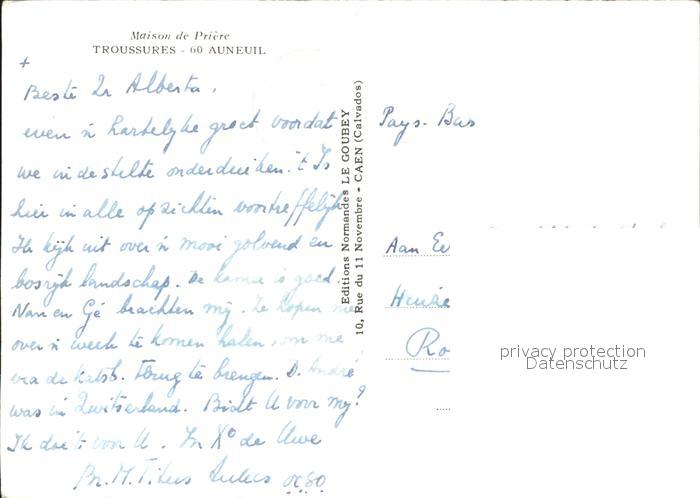 Maison de Prière
TROUSSURES - 60 AUNEUIL
+
Beste Zr Alberta,
even 'n hartelijke groet voordat
we in de stilte onderduiken. 't Is
hier in alle opzichten voortreffelijk
Ik kijk uit over 'n mooi golvend en
bosrijk landschap. De kamer is goed.
Nan en Gé brachten mij. Ze hopen me
over 'n week te komen halen, om me
via de katsb. terug te brengen. D. André
was in Zwitserland. Bidt U voor mij?
Ik doe 't voor U. In X° de Uwe
Br. M. Titus
Editions Normandes LE GOUBEY
10, Rue du 11 Novembre - CAEN (Calvados)
Pays-Bas
Aan Ee
Ro
privacy protection
Datenschutz